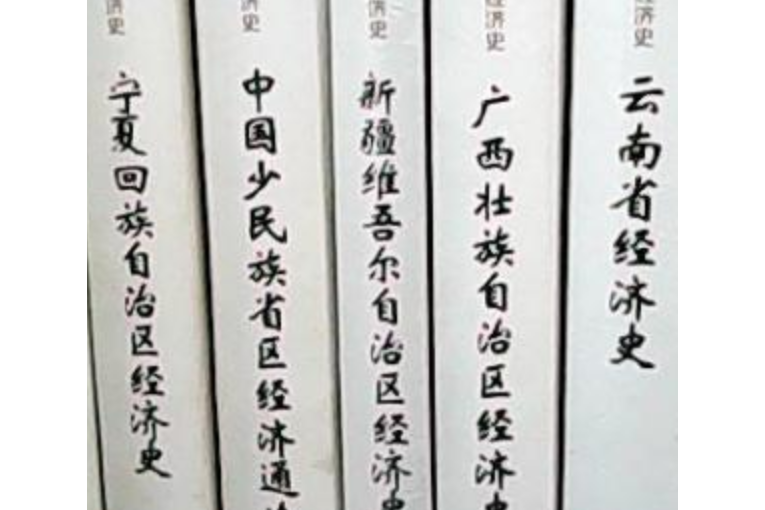 济史
宁夏回族自治区经济史
济史
中国少民族省区经济通
济史
新疆维吾尔自治区经济史
经济史
广西壮族自治区经济史
经济史
云南省经济史